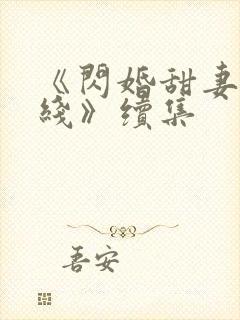 《閃婚甜妻
綫》續集
吾安